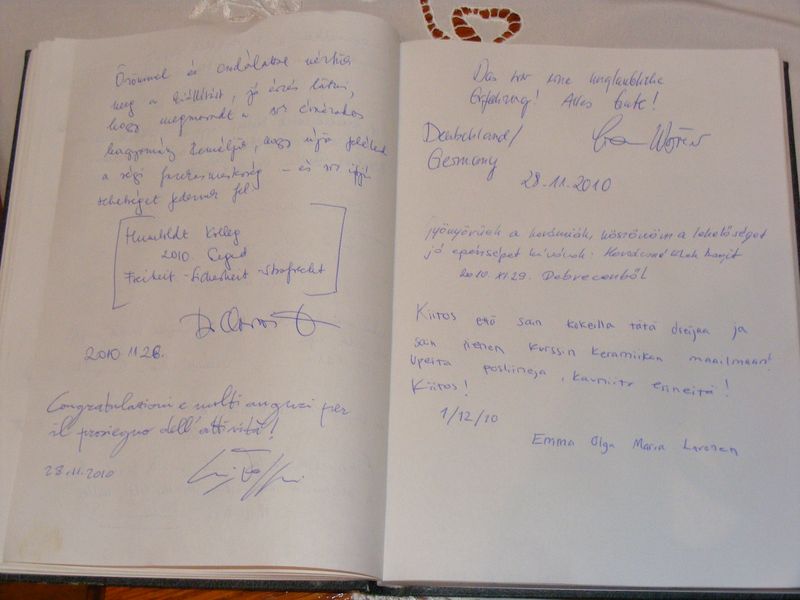 Örömmel és csodálattal néztük
meg a kiállítást, jó érzés látni,
hogy megmaradt a
hagyomány, reméljük, hogy újra feléled
a régi fazekasmesterség – és sok ifjú
tehetséget fedeznek fel.
Humboldt Kolleg
2010. Szeged
Freiheit - Sicherheit - Strafrecht
2010 11 28.
Congratulazioni e molti auguri per
il prosieguo dell'attività!
28.11.2010
Das war eine unglaubliche
Erfahrung! Alles Gute!
Deutschland/
Germany
28.11.2010
gyönyörűek a kerámiák, köszönöm a lehetőséget
jó egészséget kívánok:
2010.XI.29. Debrecenből
Kiitos että sain kokeilla tätä dreijaa ja
sain pienen kurssin keramiikan maailmaan!
Upeita posliineja, kauniita esineitä!
Kiitos!
1/12/10
Emma Olga Maria